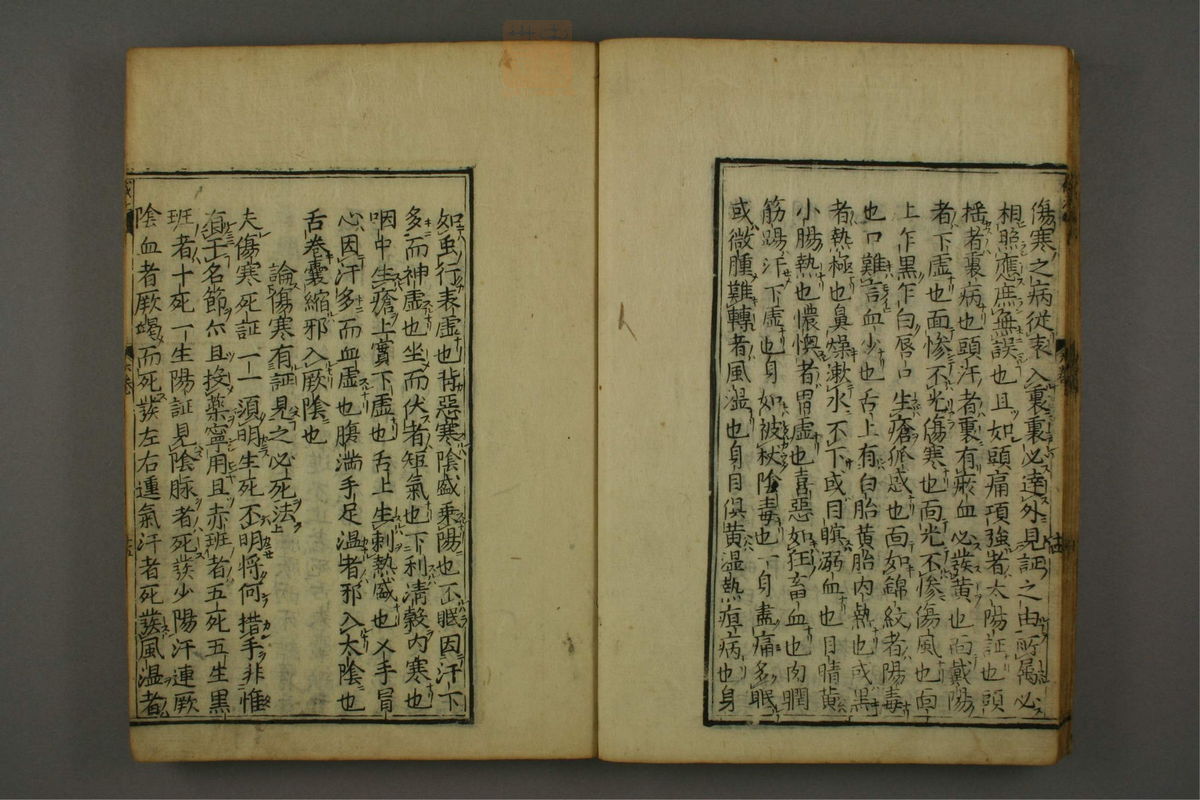 傷寒之病從表入裏裏必達外見証之由所属必
相照應庶無誤也且如頭痛項強者太陽証也頭
揺者裏病也頭汗者裏有瘀血必發黄也面戴陽
者下虚也面惨不光傷寒也面光不惨傷風也面
上乍黒乍白唇口生瘡狐惑也面如錦紋者陽毒
也口難言血少也舌上有白胎黄胎内熱也或黒
者熱極也鼻燥漱水不下或目瞑溺血也目睛黄
小腸熱也懊憹者胃虚也喜惡如狂畜血也肉瞤
筋踼汗下虚也身如被杖陰毒也一身盡痛多眠
或微腫難轉者風温也身目倶黄温熱疸病也身
如虫行表虚也背惡寒陰盛乗陽也不眠因汗下
多而神虚也坐而伏者矩氣也下利清穀内寒也
咽中生瘡上實下虚也舌上生刺熱盛也叉手冒
心因汗多而血虚也腹満手足温者邪入太陰也
舌巻囊縮邪入厥陰也
論傷寒有証見之必死法
夫傷寒死証一一須明生死不明將何措手非惟
有于名節尓且投藥寧用且赤班者五死五生黒
班者十死一生陽証見陰脉者死發少陽汗連厥
陰血者厥竭而死發左右運氣汗者死發風温者